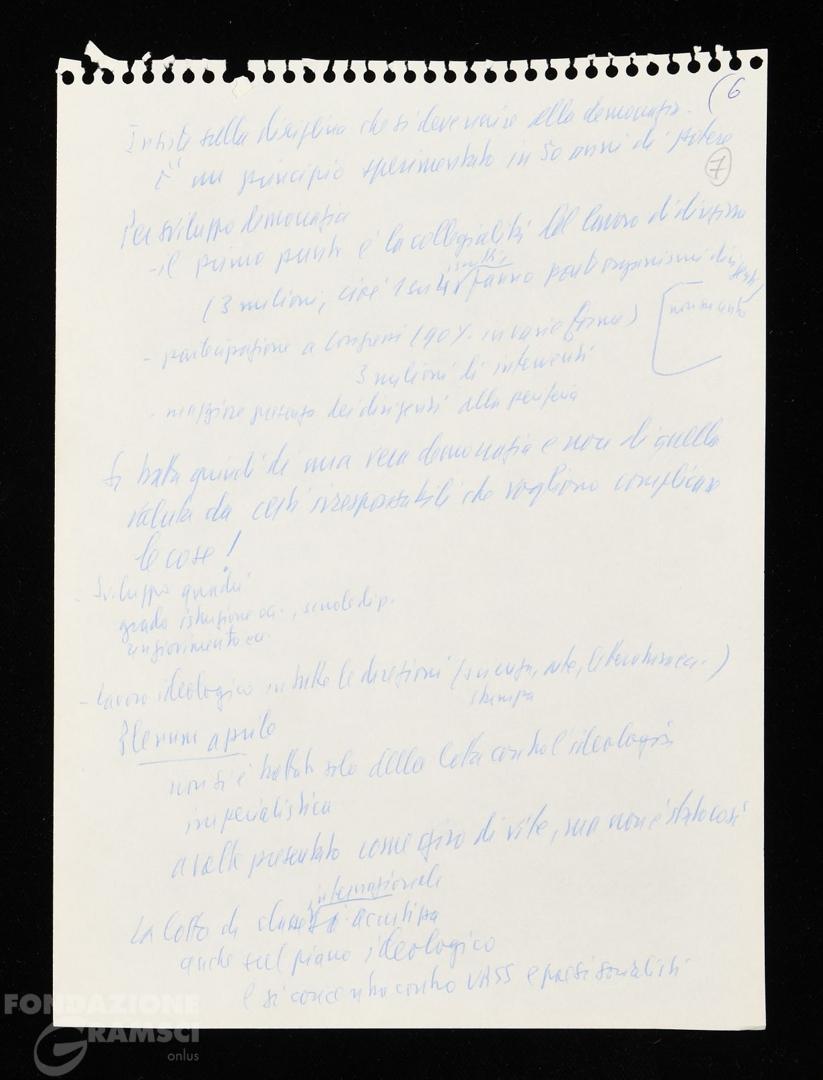 (6
7
Insiste sulla disciplina che si deve unire alla democrazia.
È un principio sperimentato in 50 anni di potere
Per sviluppo democrazia
- il primo punto è la collegialità del lavoro di direzione
(3 milioni, cioè 1 su 4 iscritti fanno parte organismi dirigenti)
- partecipazione a Congressi (90% in varie forme)
3 milioni di interventi
- maggiore presenza dei dirigenti alla periferia
Si tratta quindi di una vera democrazia e non di quella
voluta da certi irresponsabili che vogliono complicare
le cose!
- Sviluppo quadri
grado istruzione ecc., scuole di p.
- lavoro ideologico in tutte le direzioni (scienza, arte, letteratura ecc.)
stampa
Plenum aprile
non si è trattato solo della lotta contro l'ideologia
imperialistica
a volte presentato come giro di vite, ma non è stato così
La lotta di classe internazionale si acutizza
anche sul piano ideologico
e si concentra contro URSS e paesi socialisti
FONDAZIONE
GRAMSCI
onlus